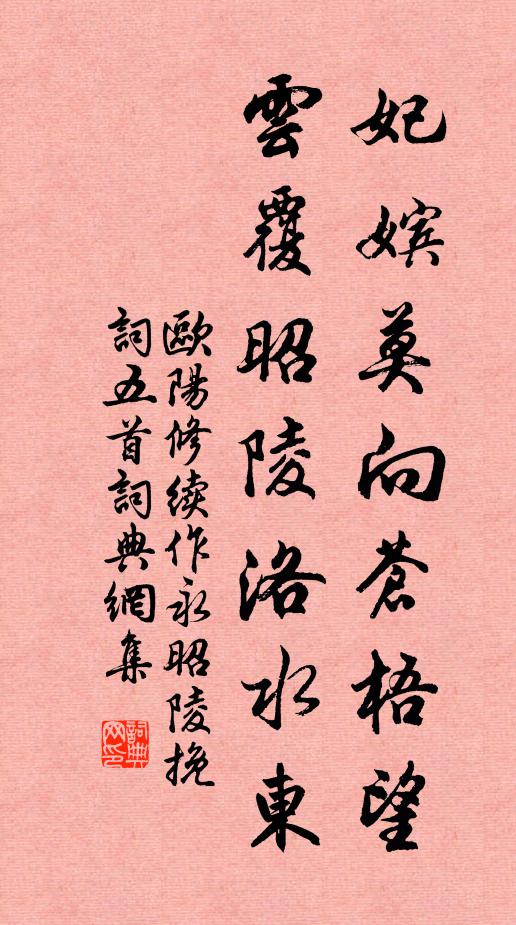 妃嬪莫向蒼梧望
雲覆昭陵洛水東
歐陽修续作永昭陵挽
詞五首詞典網集
詞典
网印